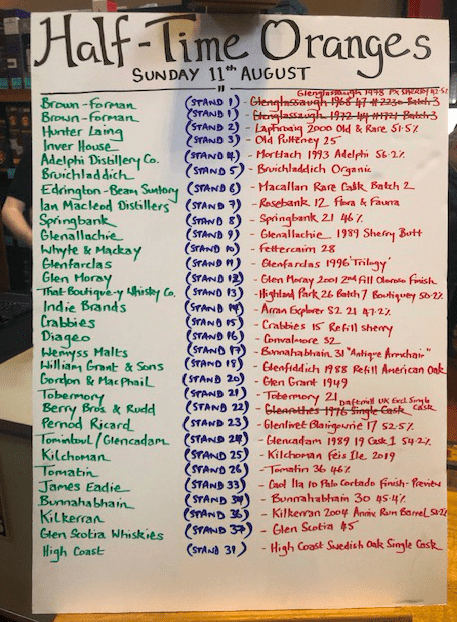 Half-Time Oranges
SUNDAY 11th AUGUST
Glenglassaugh 1973 PX SHERRY
Brown-Forman (STAND 1) - Glenglassaugh 1968 47 # 2230 Batch 3
Brown-Forman (STAND 1) - Glenglassaugh 1972 44 # 1721 Batch 3
Hunter Laing (STAND 2) - Laphroaig 2000 Old & Rare 51.5%
Inver House (STAND 3) - Old Pulteney 25
Adelphi Distillery Co. (STAND 4) - Mortlach 1993 Adelphi 56.2%
Bruichladdich (STAND 5) - Bruichladdich Organic
Edrington-Beam Suntory (STAND 6) - Macallan Rare Cask Batch 2
Ian Macleod Distillers (STAND 7) - Rosebank 12 Flora & Fauna
Springbank (STAND 8) - Springbank 21 46%
Glenallachie (STAND 9) - Glenallachie 1989 Sherry Butt
Whyte & Mackay (STAND 10) - Fettercairn 28
Glenfarclas (STAND 11) - Glenfarclas 1996 'Trilogy'
Glen Moray (STAND 12) - Glen Moray 2001 2nd Fill Oloroso Finish
That Boutique-y Whisky Co. (STAND 13) - Highland Park 26 Batch 7 Boutiquey 50.2%
Indie Brands (STAND 14) - Arran Explorer S2 21 47.2%
Crabbies (STAND 15) - Crabbies 15 Refill Sherry
Diageo (STAND 16) - Convalmore 32
Wemyss Malts (STAND 17) - Bunnahabhain 31 "Antique Armchair"
William Grant & Sons (STAND 18) - Glenfiddich 1988 Refill American Oak
Gordon & MacPhail (STAND 20) - Glen Grant 1949
Tobermory (STAND 21) - Tobermory 21
Daftmill UK Excl. Single Cask
Berry Bros. & Rudd (STAND 22) - Glenrothes 1976 Single Cask
Pernod Ricard (STAND 23) - Glenlivet Blairgowrie 17 52.5%
Tomintoul / Glencadam (STAND 24) - Glencadam 1989 19 Cask 1 54.2%
Kilchoman (STAND 25) - Kilchoman Feis Ile 2019
Tomatin (STAND 26) - Tomatin 36 46%
James Eadie (STAND 33) - Caol Ila 10 Palo Cortado Finish - Preview
Bunnahabhain (STAND 34) - Bunnahabhain 30 45.4%
Kilkerran (STAND 36) - Kilkerran 2004 Annix Rum Barrel
Glen Scotia Whiskies (STAND 37) - Glen Scotia 45
High Coast (STAND 31) - High Coast Swedish Oak Single Cask